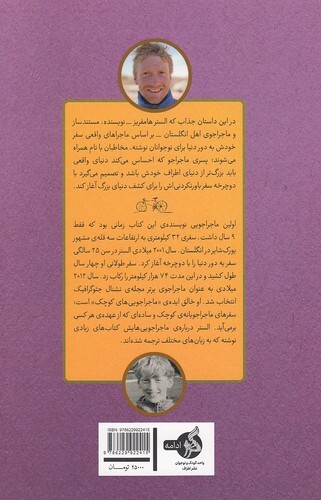 در این داستان جذاب که الستر هامفریز ــ نویسنده، مستندساز
و ماجراجوی اهل انگلستان ــ بر اساس ماجراهای واقعی سفر
خودش به دور دنیا برای نوجوانان نوشته، مخاطبان با تام همراه
می‌شوند؛ پسری ماجراجو که احساس می‌کند دنیای واقعی
باید بزرگ‌تر از دنیای اطراف خودش باشد و تصمیم می‌گیرد با
دوچرخه سفر باورنکردنی‌اش را برای کشف دنیای بزرگ آغاز کند.
اولین ماجراجویی نویسنده‌ی این کتاب زمانی بود که فقط
۹ سال داشت، سفری ۳۲ کیلومتری به ارتفاعات سه قله‌ی مشهور
یورک‌شایر در انگلستان. سال ۲۰۰۱ میلادی الستر در سن ۲۵ سالگی
سفر به دور دنیا را با دوچرخه آغاز کرد. سفر طولانی او چهار سال
طول کشید و در این مدت ۷۴ هزار کیلومتر را رکاب زد. سال ۲۰۱۲
میلادی به عنوان ماجراجوی برتر مجله‌ی نشنال جئوگرافیک
انتخاب شد. او خالق ایده‌ی «ماجراجویی‌های کوچک» است؛
سفرهای ماجراجویانه‌ی کوچک و ساده‌ای که از عهده‌ی هر کسی
برمی‌آید. الستر درباره‌ی ماجراجویی‌هایش کتاب‌های زیادی
نوشته که به زبان‌های مختلف ترجمه شده‌اند.
ISBN: 9786229922415
9 786229 922415
۲۵۰۰۰ تومـان
ادامه
واحد کودک و نوجوان
نشر اطراف